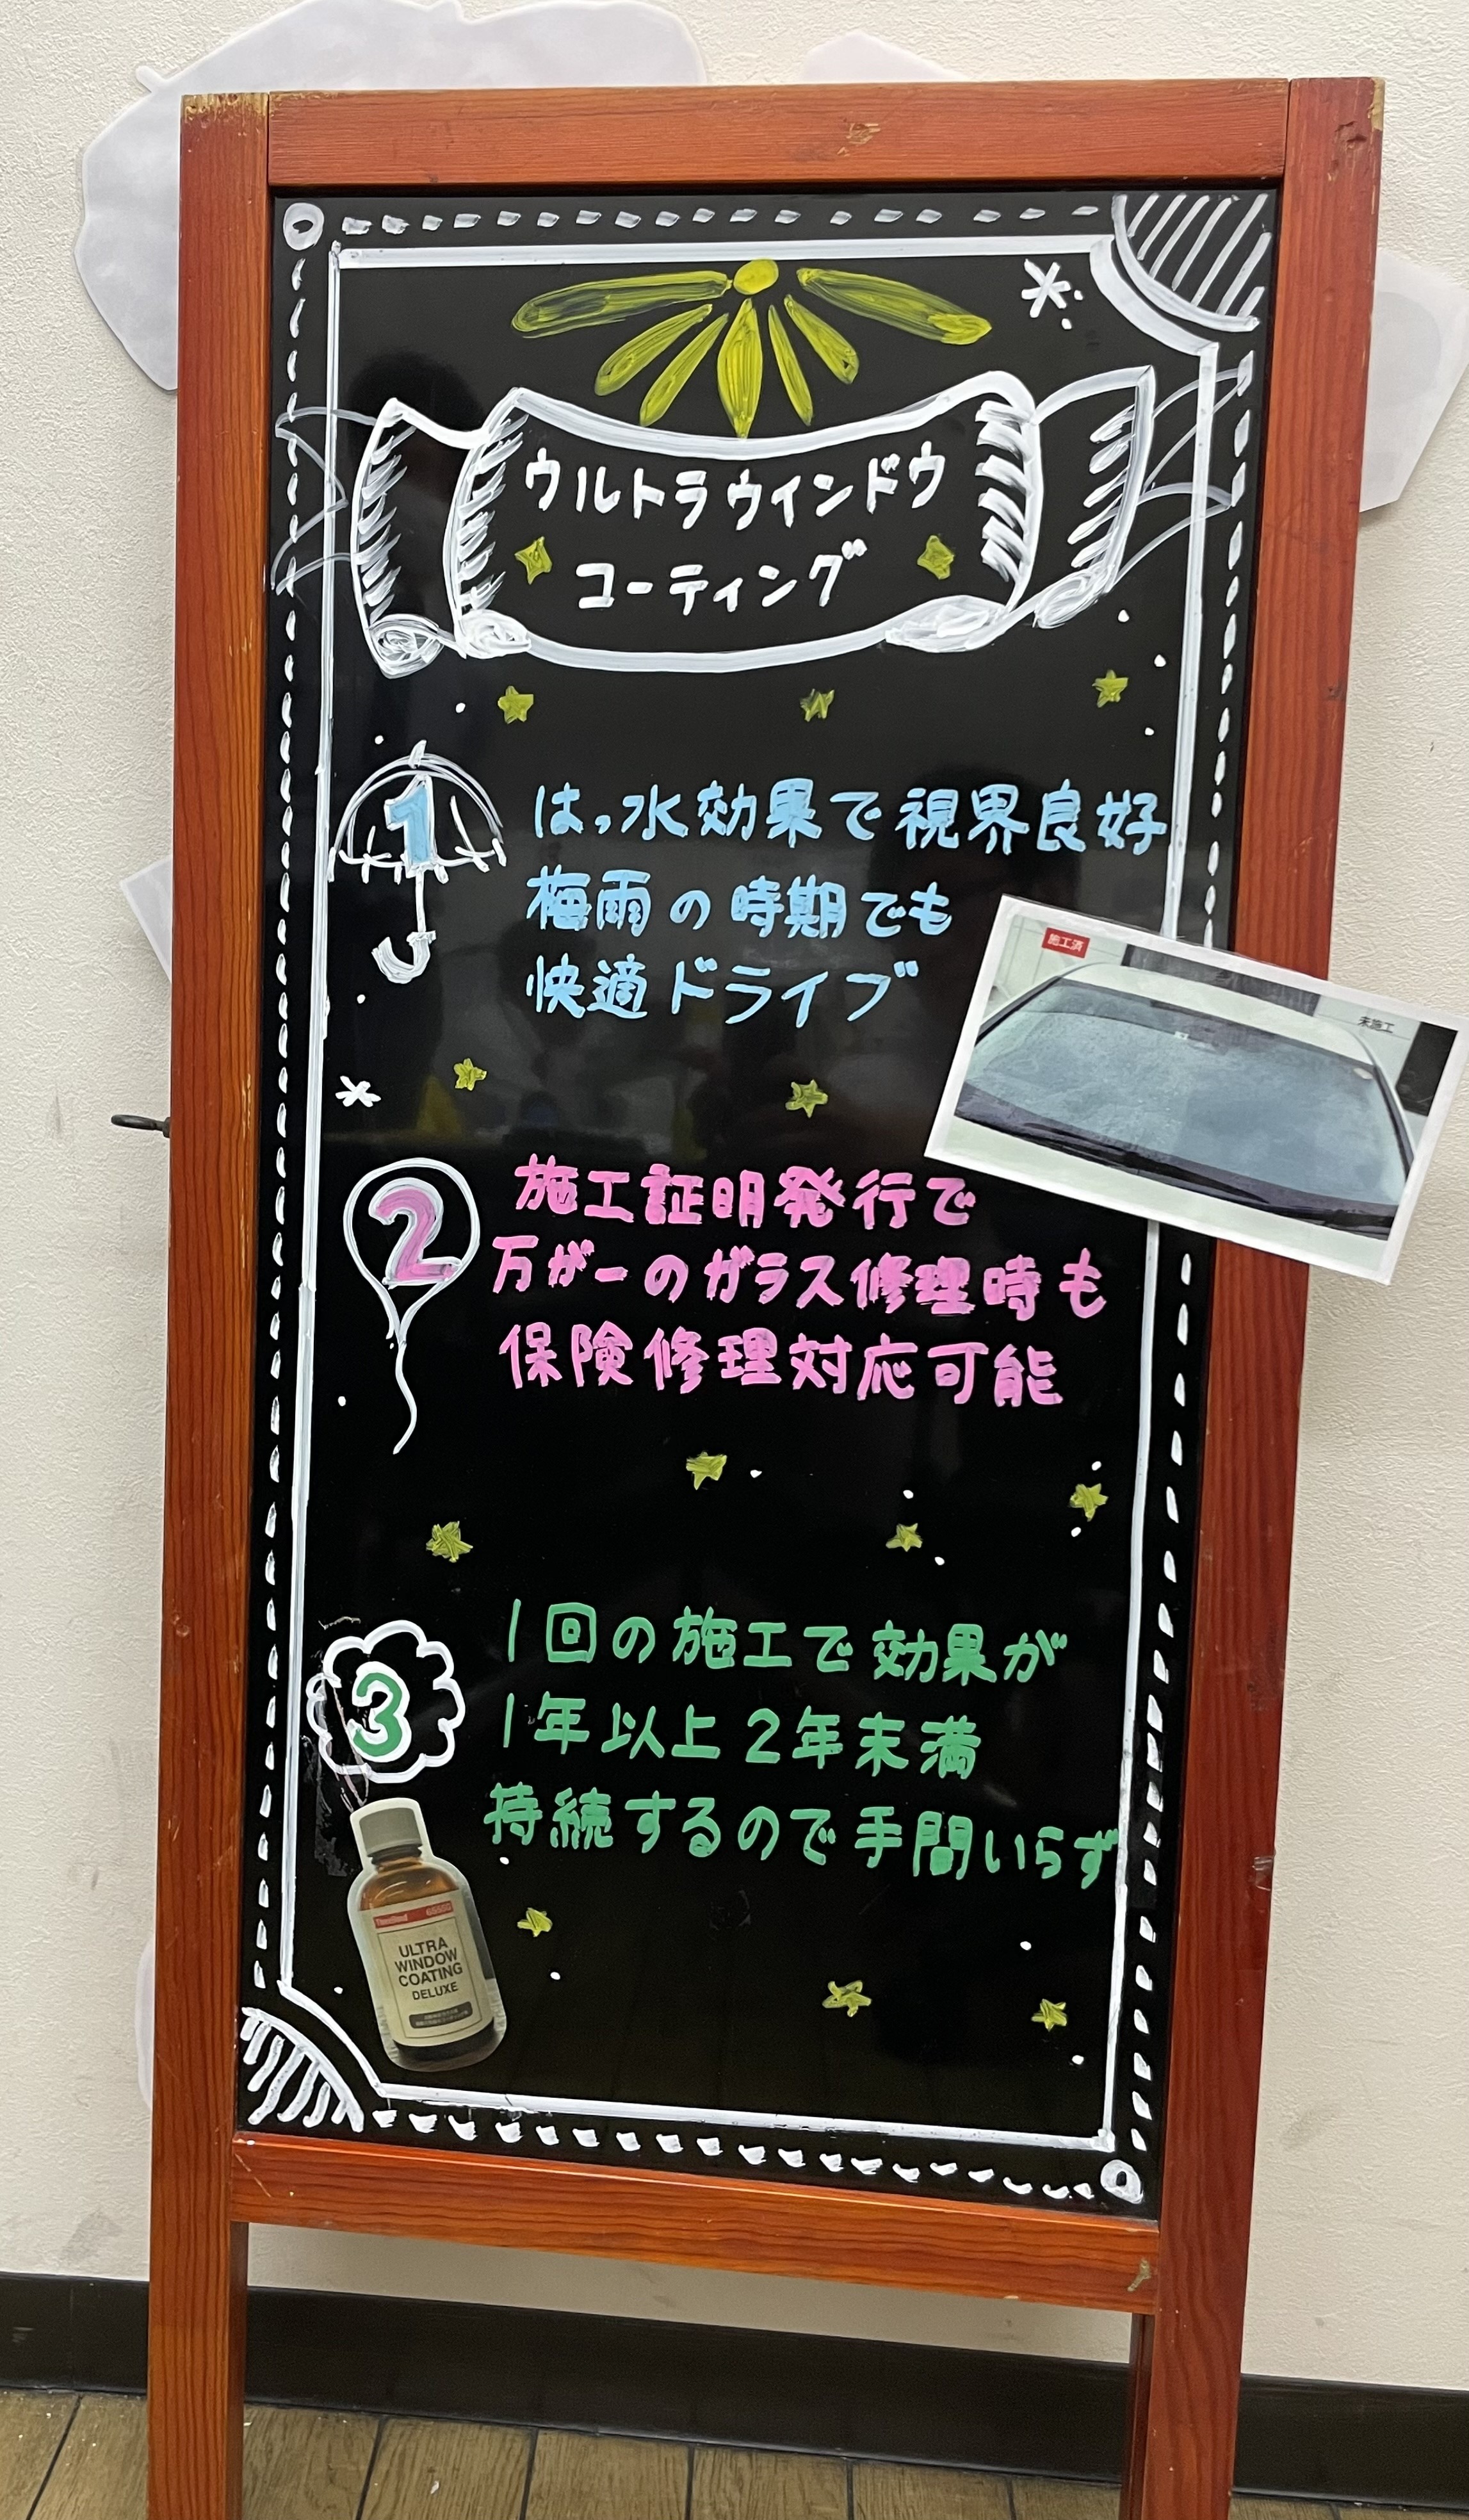 ウルトラウインドウ
コーティング
1
はっ水効果で視界良好
梅雨の時期でも
快適ドライブ
施工済
未施工
2
施工証明発行で
万が一のガラス修理時も
保険修理対応可能
3
1回の施工で効果が
1年以上2年未満
持続するので手間いらず
ThreeBond
ULTRA
WINDOW
COATING
DELUXE